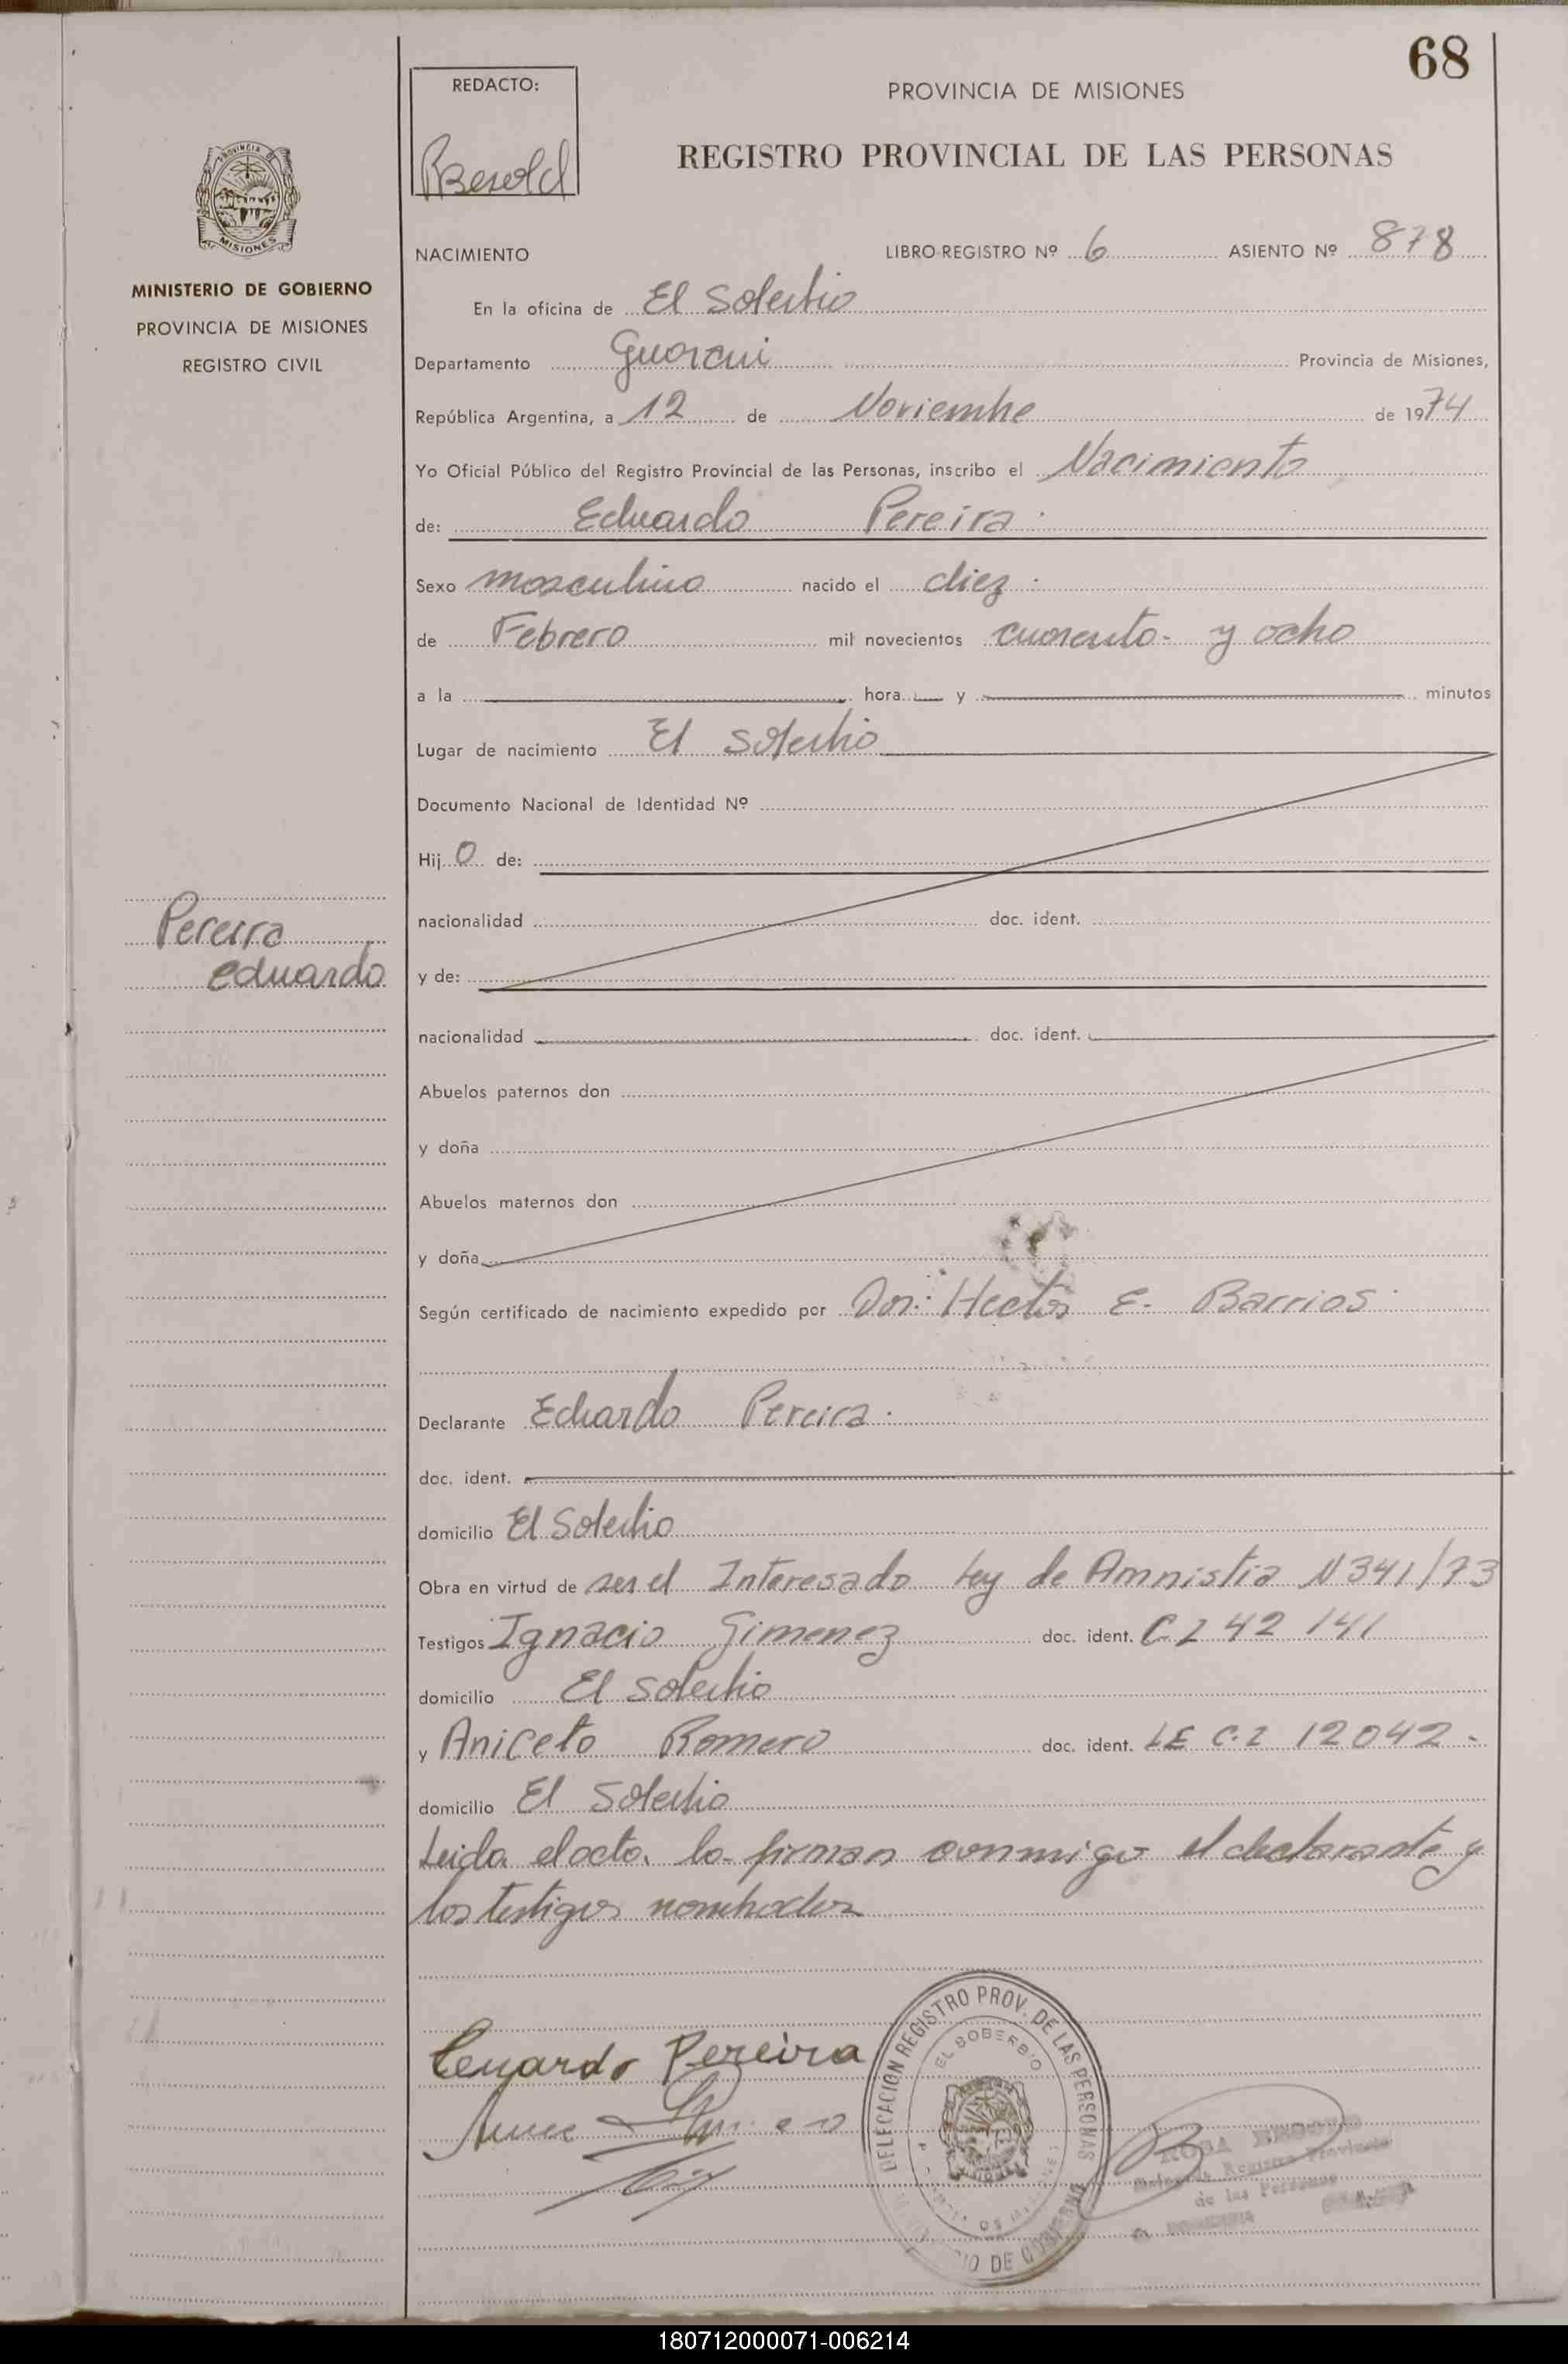 68
REDACTO:
PROVINCIA DE MISIONES
REGISTRO PROVINCIAL DE LAS PERSONAS
PROVINCIA DE
MISIONES
MINISTERIO DE GOBIERNO
PROVINCIA DE MISIONES
REGISTRO CIVIL
NACIMIENTO LIBRO-REGISTRO Nº 6 ASIENTO Nº 878
En la oficina de El Soberbio
Departamento Guarani Provincia de Misiones,
República Argentina, a 12 de Noviembre de 1974
Yo Oficial Público del Registro Provincial de las Personas, inscribo el Nacimiento
de: Eduardo Pereira
Sexo masculino nacido el diez
de Febrero mil novecientos cuarenta y ocho
a la hora y minutos
Lugar de nacimiento El Soberbio
Documento Nacional de Identidad Nº
Hijo de:
Pereira
Eduardo
nacionalidad doc. ident.
y de:
nacionalidad doc. ident.
Abuelos paternos don
y doña
Abuelos maternos don
y doña
Según certificado de nacimiento expedido por Don: Hector E. Barrios
Declarante Eduardo Pereira
doc. ident.
domicilio El Soberbio
Obra en virtud de ser el Interesado Ley de Amnistia N 341/73
Testigos Ignacio Gimenez doc. ident. C.I 42 141
domicilio El Soberbio
y Aniceto Romero doc. ident. LE C.I 12042
domicilio El Soberbio
Leida el acta, la firman conmigo el declarante y
los testigos nombrados
Eduardo Pereira
DELEGACION REGISTRO PROV. DE LAS PERSONAS
EL SOBERBIO
de las Personas
180712000071-006214